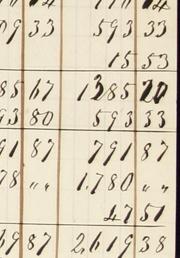 09 33 593 33
15 53
85 67 1385 20
93 80 593 33
91 87 791 87
78 " " 1,780 " "
47 51
69 87 2619 38